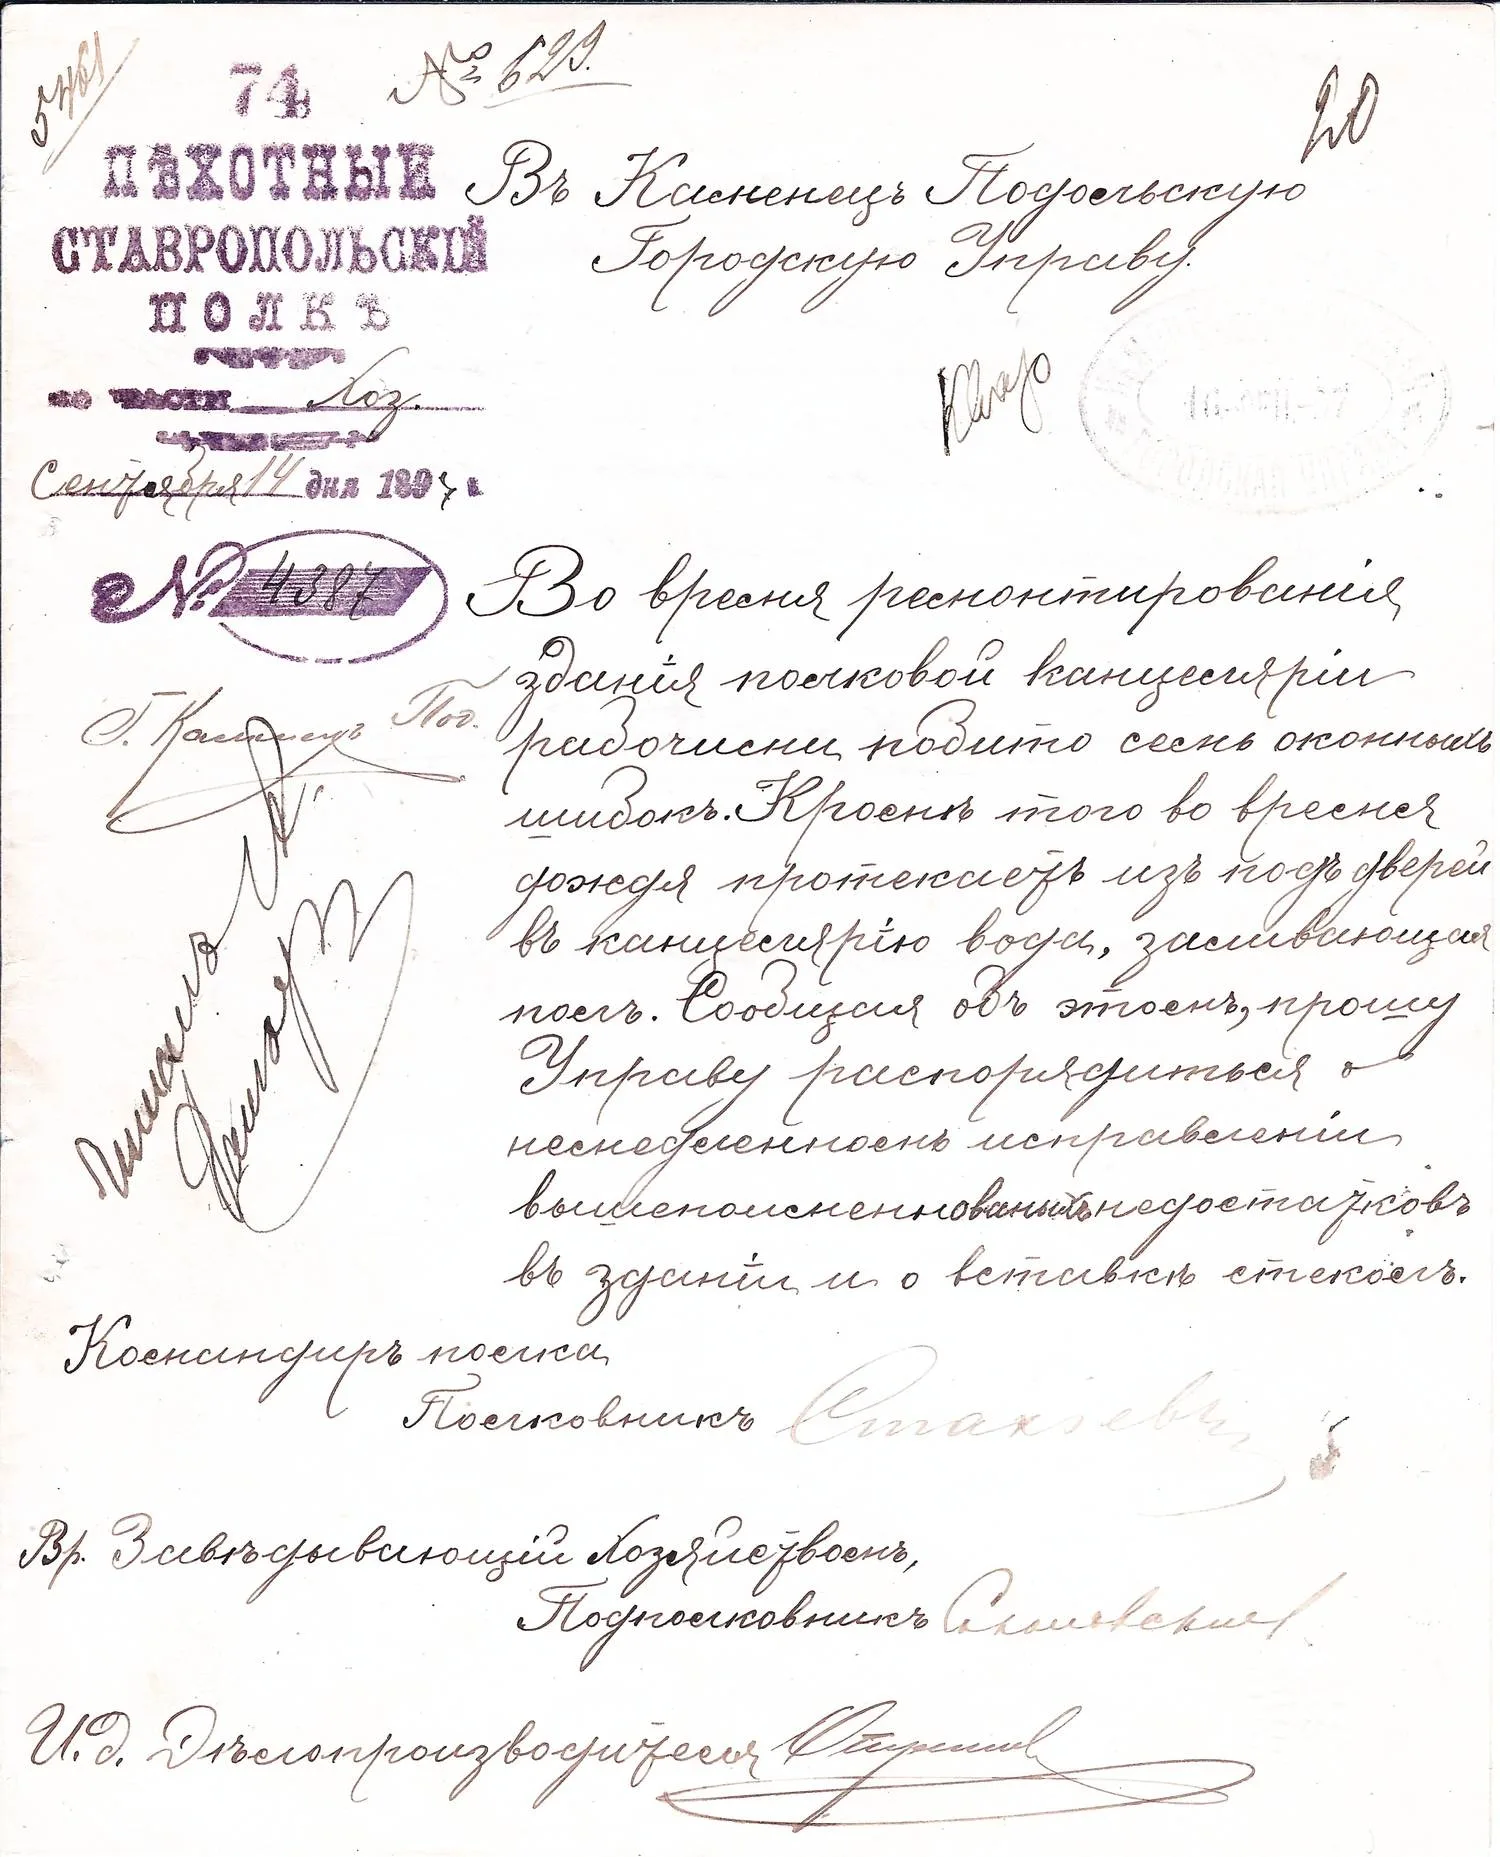 5461
№ 629.
20
74
ПѢХОТНЫЙ
СТАВРОПОЛЬСКІЙ
ПОЛКЪ
по части Хоз.
Сентября 14 дня 1897 г.
№ 4387
Г. Каменецъ Под.
Въ Каменецъ Подольскую
Городскую Управу.
Во время ремонтированія
зданія полковой канцеляріи
рабочими побито семь оконныхъ
шибокъ. Кромѣ того во время
дождя протекаетъ изъ подъ дверей
въ канцелярію вода, заливающая
полъ. Сообщая объ этомъ, прошу
Управу распорядиться о
немедленномъ исправленіи
вышепоименнованныхъ недостатковъ
въ зданіи и о вставкѣ стеколъ.
Командиръ полка
Полковникъ
Вр. Завѣдывающій Хозяйствомъ,
Подполковникъ
И. д. Дѣлопроизводителя